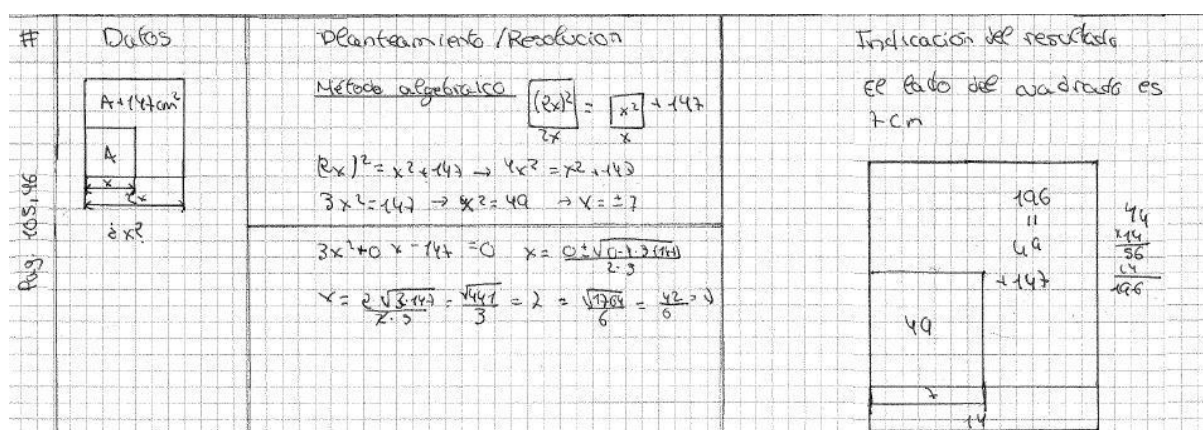 #
Pág. 105, 46
Datos
A+147cm²
A
x
2x
¿x?
Planteamiento / Resolucion
Método algebraico
(2x)² = x² + 147
2x x
(2x)² = x²+147 → 4x² = x²+147
3x²=147 → x²=49 → x=±7
3x²+0x-147=0 x=
2·3
Indicación del resultado
El lado del cuadrado es
7cm
196
=
49
+147
49
7
14
x14
56
14
196